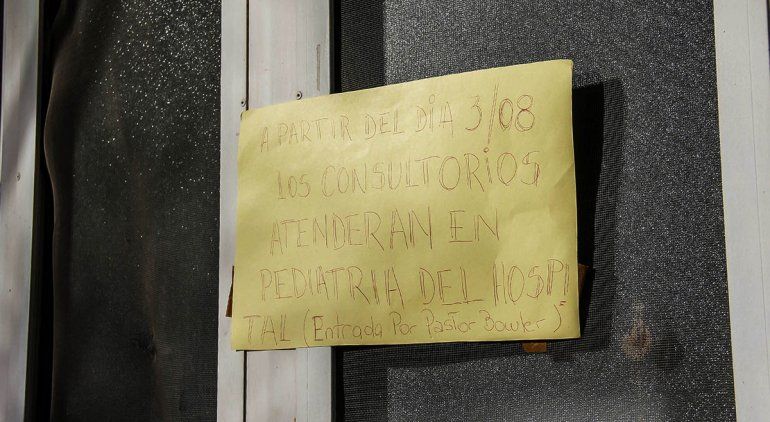 A PARTIR DEL DIA 3/08
LOS CONSULTORIOS
ATENDERAN EN
PEDIATRIA DEL HOSPI
TAL (Entrada Por Pastor Bowler)